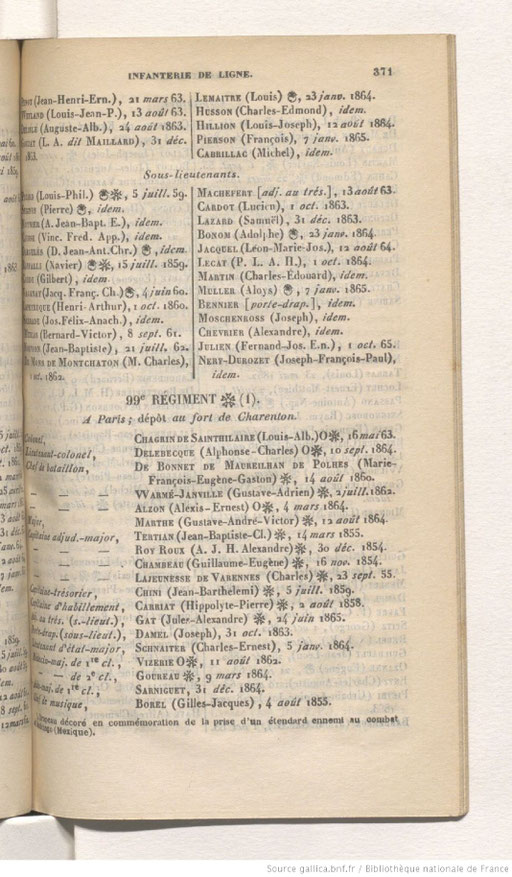 INFANTERIE DE LIGNE. 371
(Jean-Henri-Ern.), 21 mars 63.
(Louis-Jean-P.), 13 août 63.
(Auguste-Alb.), 24 août 1863.
(L. A. dit MAILLARD), 31 déc.
LEMAITRE (Louis) , 23 janv. 1864.
HUSSON (Charles-Edmond), idem.
HILLION (Louis-Joseph), 12 août 1864.
PIERSON (François), 7 janv. 1865.
CABRILLAC (Michel), idem.
Sous-lieutenants.
(Louis-Phil.) , 5 juill. 59.
(Pierre) , idem.
(A. Jean-Bapt. E.), idem.
(Vinc. Fred. App.), idem.
(D. Jean-Ant. Chr.) , idem.
(Navier) , 15 juill. 1859.
(Gilbert), idem.
(Jacq. Franç. Ch.) , 4 juin 60.
(Henri-Arthur), 1 oct. 1860.
(Jos. Félix-Anach.), idem.
(Bernard-Victor), 8 sept. 61.
(Jean-Baptiste), 21 juill. 62.
MONS DE MONTCHATON (M. Charles),
1 oct. 1862.
MACHEFERT [adj. au trés.], 13 août 63.
CARDOT (Lucien), 1 oct. 1863.
LAZARD (Samuël), 31 déc. 1863.
BONOM (Adolphe) , 23 janv. 1864.
JACQUEL (Léon-Marie-Jos.), 12 août 64.
LECAT (P. L. A. H.), 1 oct. 1864.
MARTIN (Charles-Édouard), idem.
MULLER (Aloys) , 7 janv. 1865.
BENNIER [porte-drap.], idem.
MOSCHENROSS (Joseph), idem.
CHEVRIER (Alexandre), idem.
JULIEN (Fernand-Jos. En.), 1 oct. 65.
NERY-DUROZET (Joseph-François-Paul),
idem.
99e RÉGIMENT (1).
A Paris; dépôt au fort de Charenton.
Colonel, CHAGRIN DE SAINTHILAIRE (Louis-Alb.) O, 16 mai 63.
Lieutenant-colonel, DELEBECQUE (Alphonse-Charles) O, 10 sept. 1864.
Chef de bataillon, DE BONNET DE MAUREILHAN DE POLHES (Marie-
François-Eugène-Gaston) , 14 août 1860.
— — WARMÉ-JANVILLE (Gustave-Adrien) , 2 juill. 1862.
— — ALZON (Alexis-Ernest) O, 4 mars 1864.
Major, MARTHE (Gustave-André-Victor) , 12 août 1864.
Capitaine adjud.-major, TERTIAN (Jean-Baptiste-Cl.) , 14 mars 1855.
— — — ROY ROUX (A. J. H. Alexandre) , 30 déc. 1854.
— — — CHAMBEAU (Guillaume-Eugène) , 16 nov. 1854.
— — — LAJEUNESSE DE VARENNES (Charles) , 23 sept. 55.
Capitaine-trésorier, CHINI (Jean-Barthelemi) , 5 juill. 1859.
Capitaine d'habillement, CARRIAT (Hippolyte-Pierre) , 2 août 1858.
au trés. (s.-lieut.), GAT (Jules-Alexandre) , 24 juin 1865.
drap. (sous-lieut.), DAMEL (Joseph), 31 oct. 1863.
d'état-major, SCHNAITER (Charles-Ernest), 5 janv. 1864.
maj. de 1re cl., VIZERIE O, 11 août 1862.
— de 2e cl., GOUREAU , 9 mars 1864.
maj. de 1re cl., SARNIGUET, 31 déc. 1864.
de musique, BOREL (Gilles-Jacques), 4 août 1855.
décoré en commémoration de la prise d'un étendard ennemi au combat
(Mexique).
Source gallica.bnf.fr / Bibliothèque nationale de France